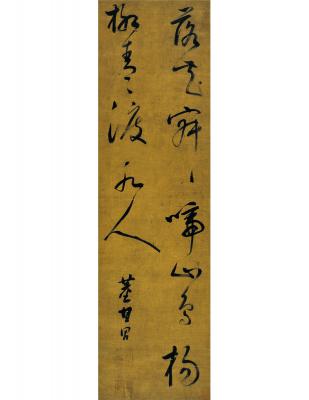 落花寂〻啼山鳥楊
柳青〻渡水人
董其昌